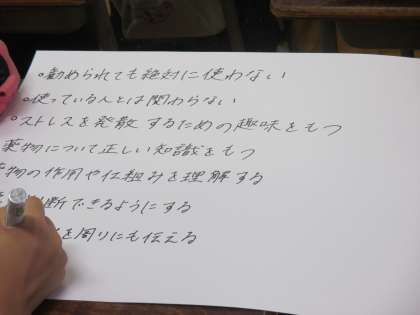 ○勧められても絶対に使わない
○使っている人とは関わらない
○ストレスを発散するための趣味をもつ
薬物について正しい知識をもつ
物の作用や仕組みを理解する
断できるようにする
を周りにも伝える